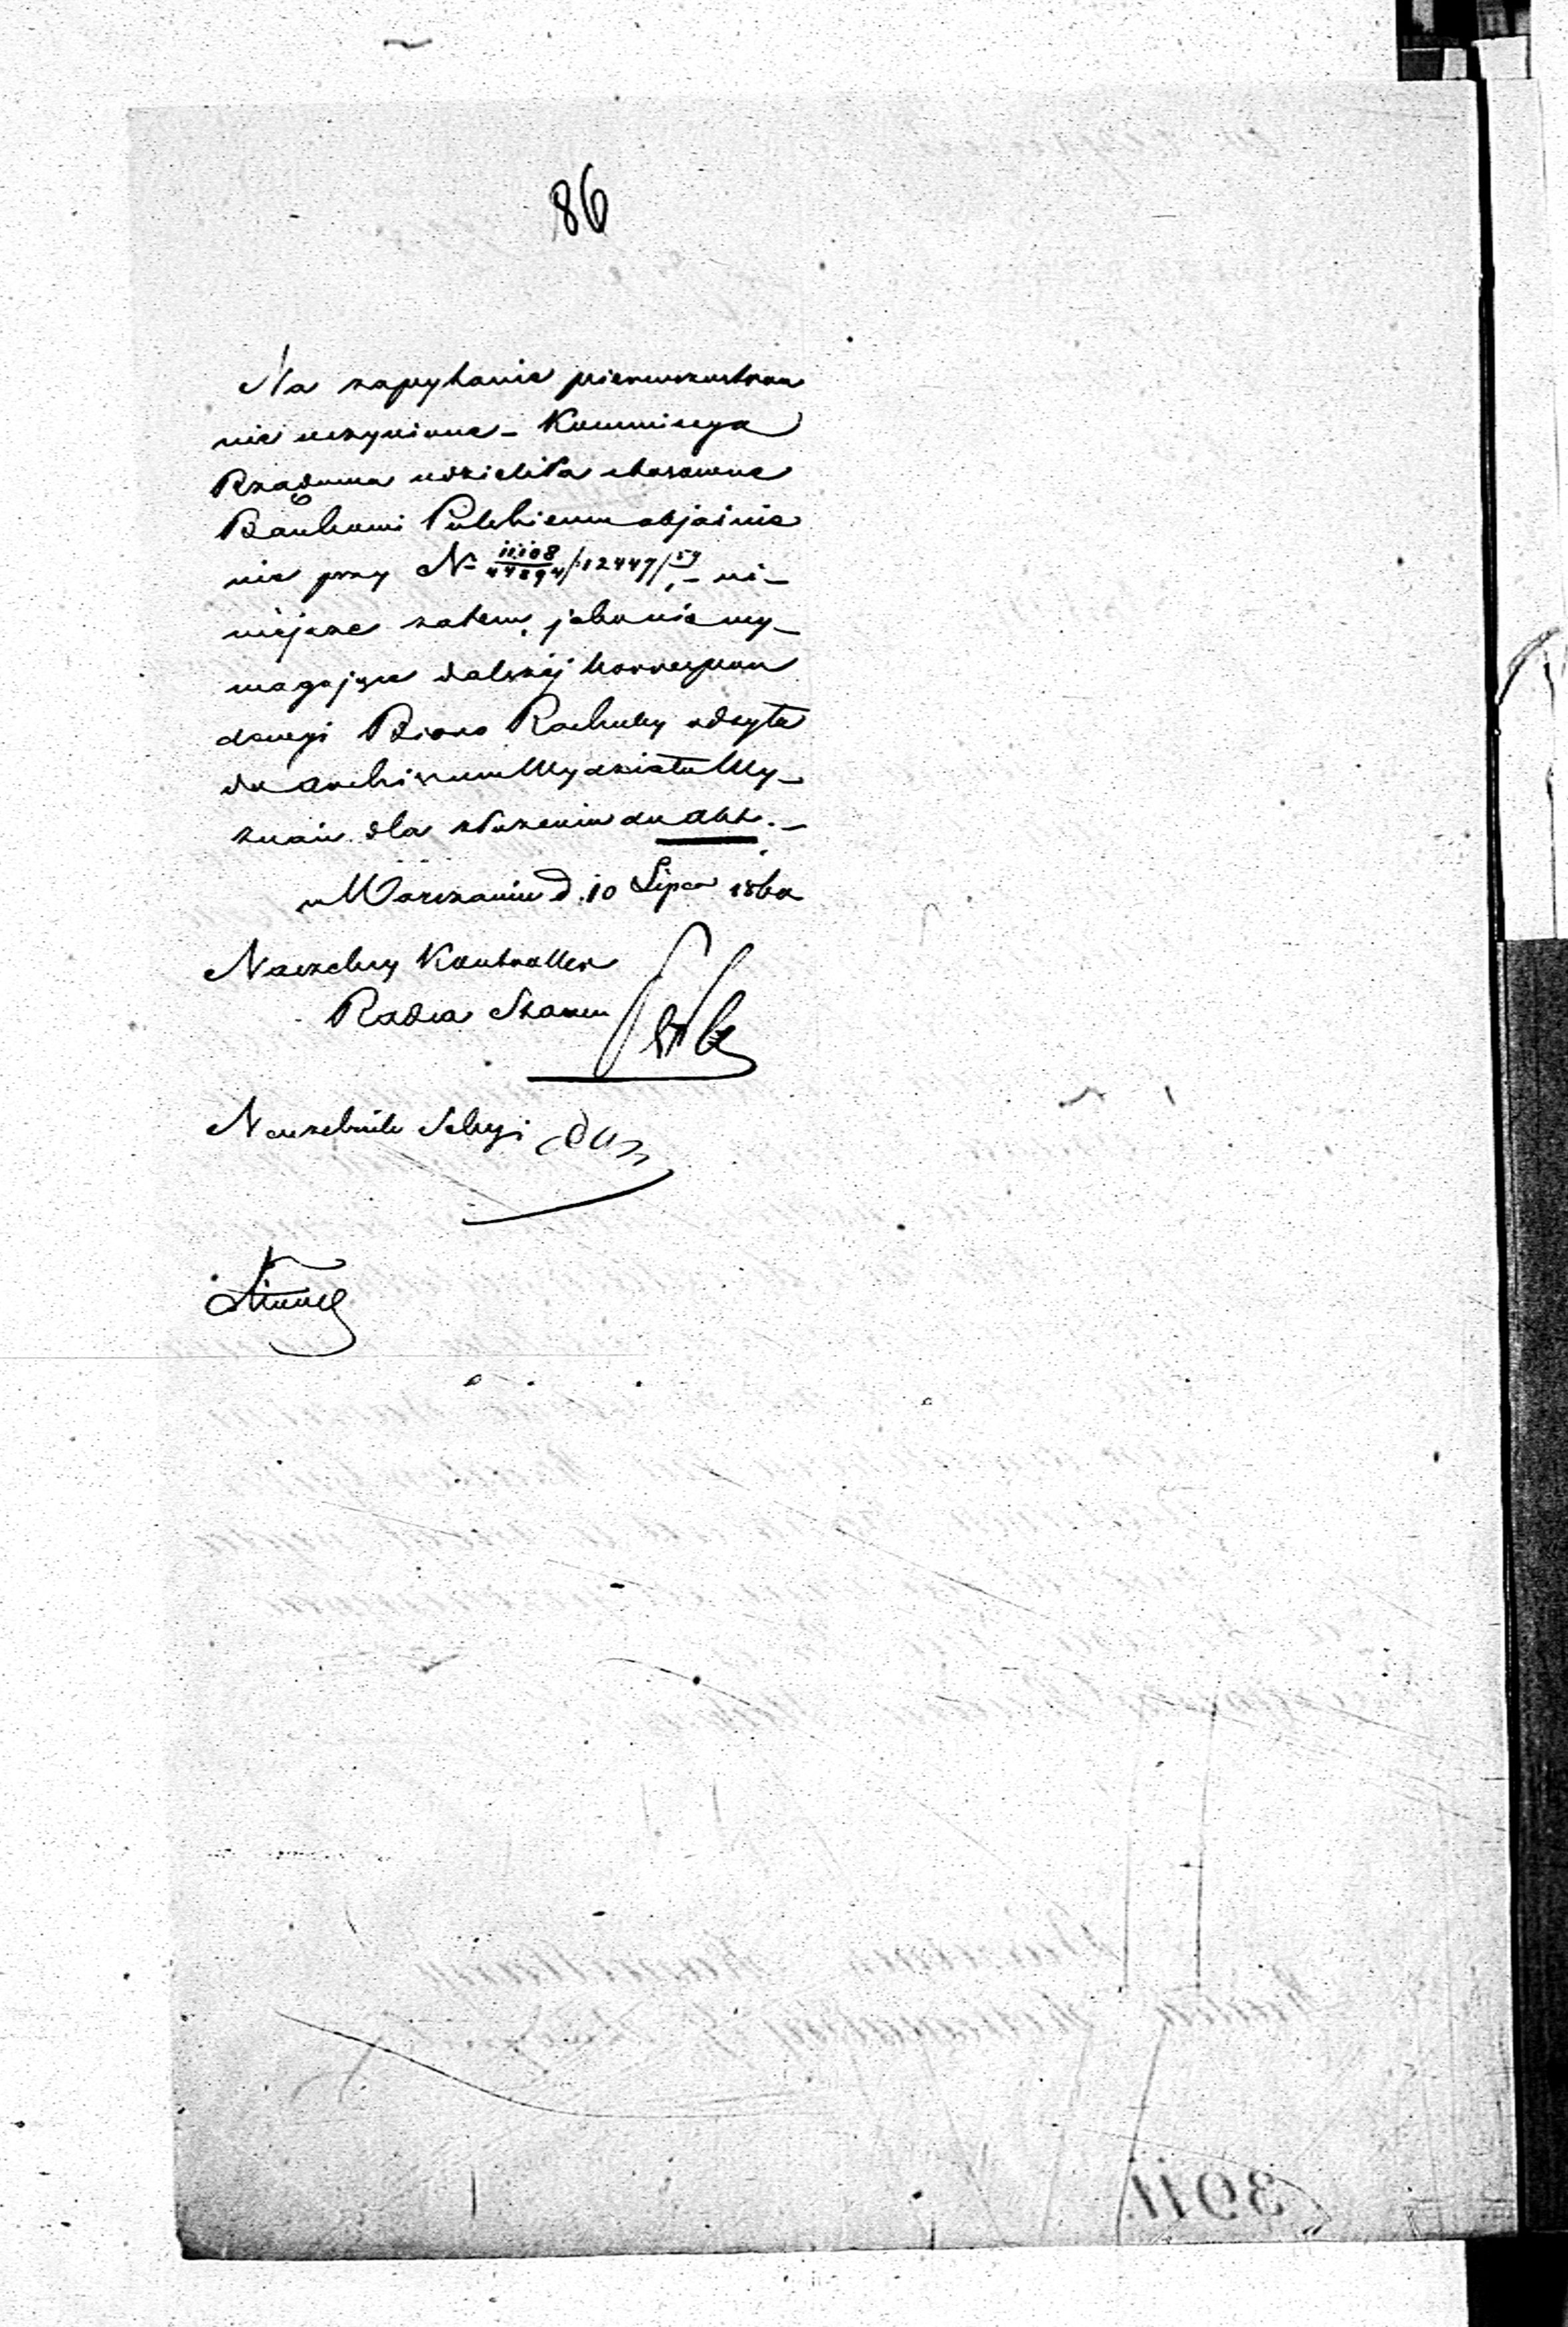 86
Na zapytanie pierwszostron
nie uczynione – Kommissya
Rządowa udzieliła stosowne
Bankowi Polskiemu objaśnie
nie przy N° 11108/44894/12447/59, – ni–
niejsze zatem, jako nie wy–
magające dalszéj korrespon
dencyi Bióro Rachuby odsyła
do Archiwum Wydziału Wy–
znań dla złożenia do Akt. –
w Warszawie d. 10 Lipca 1860
Naczelny Kontroller
Radca Stanu
Naczelnik Sekcyi
3911